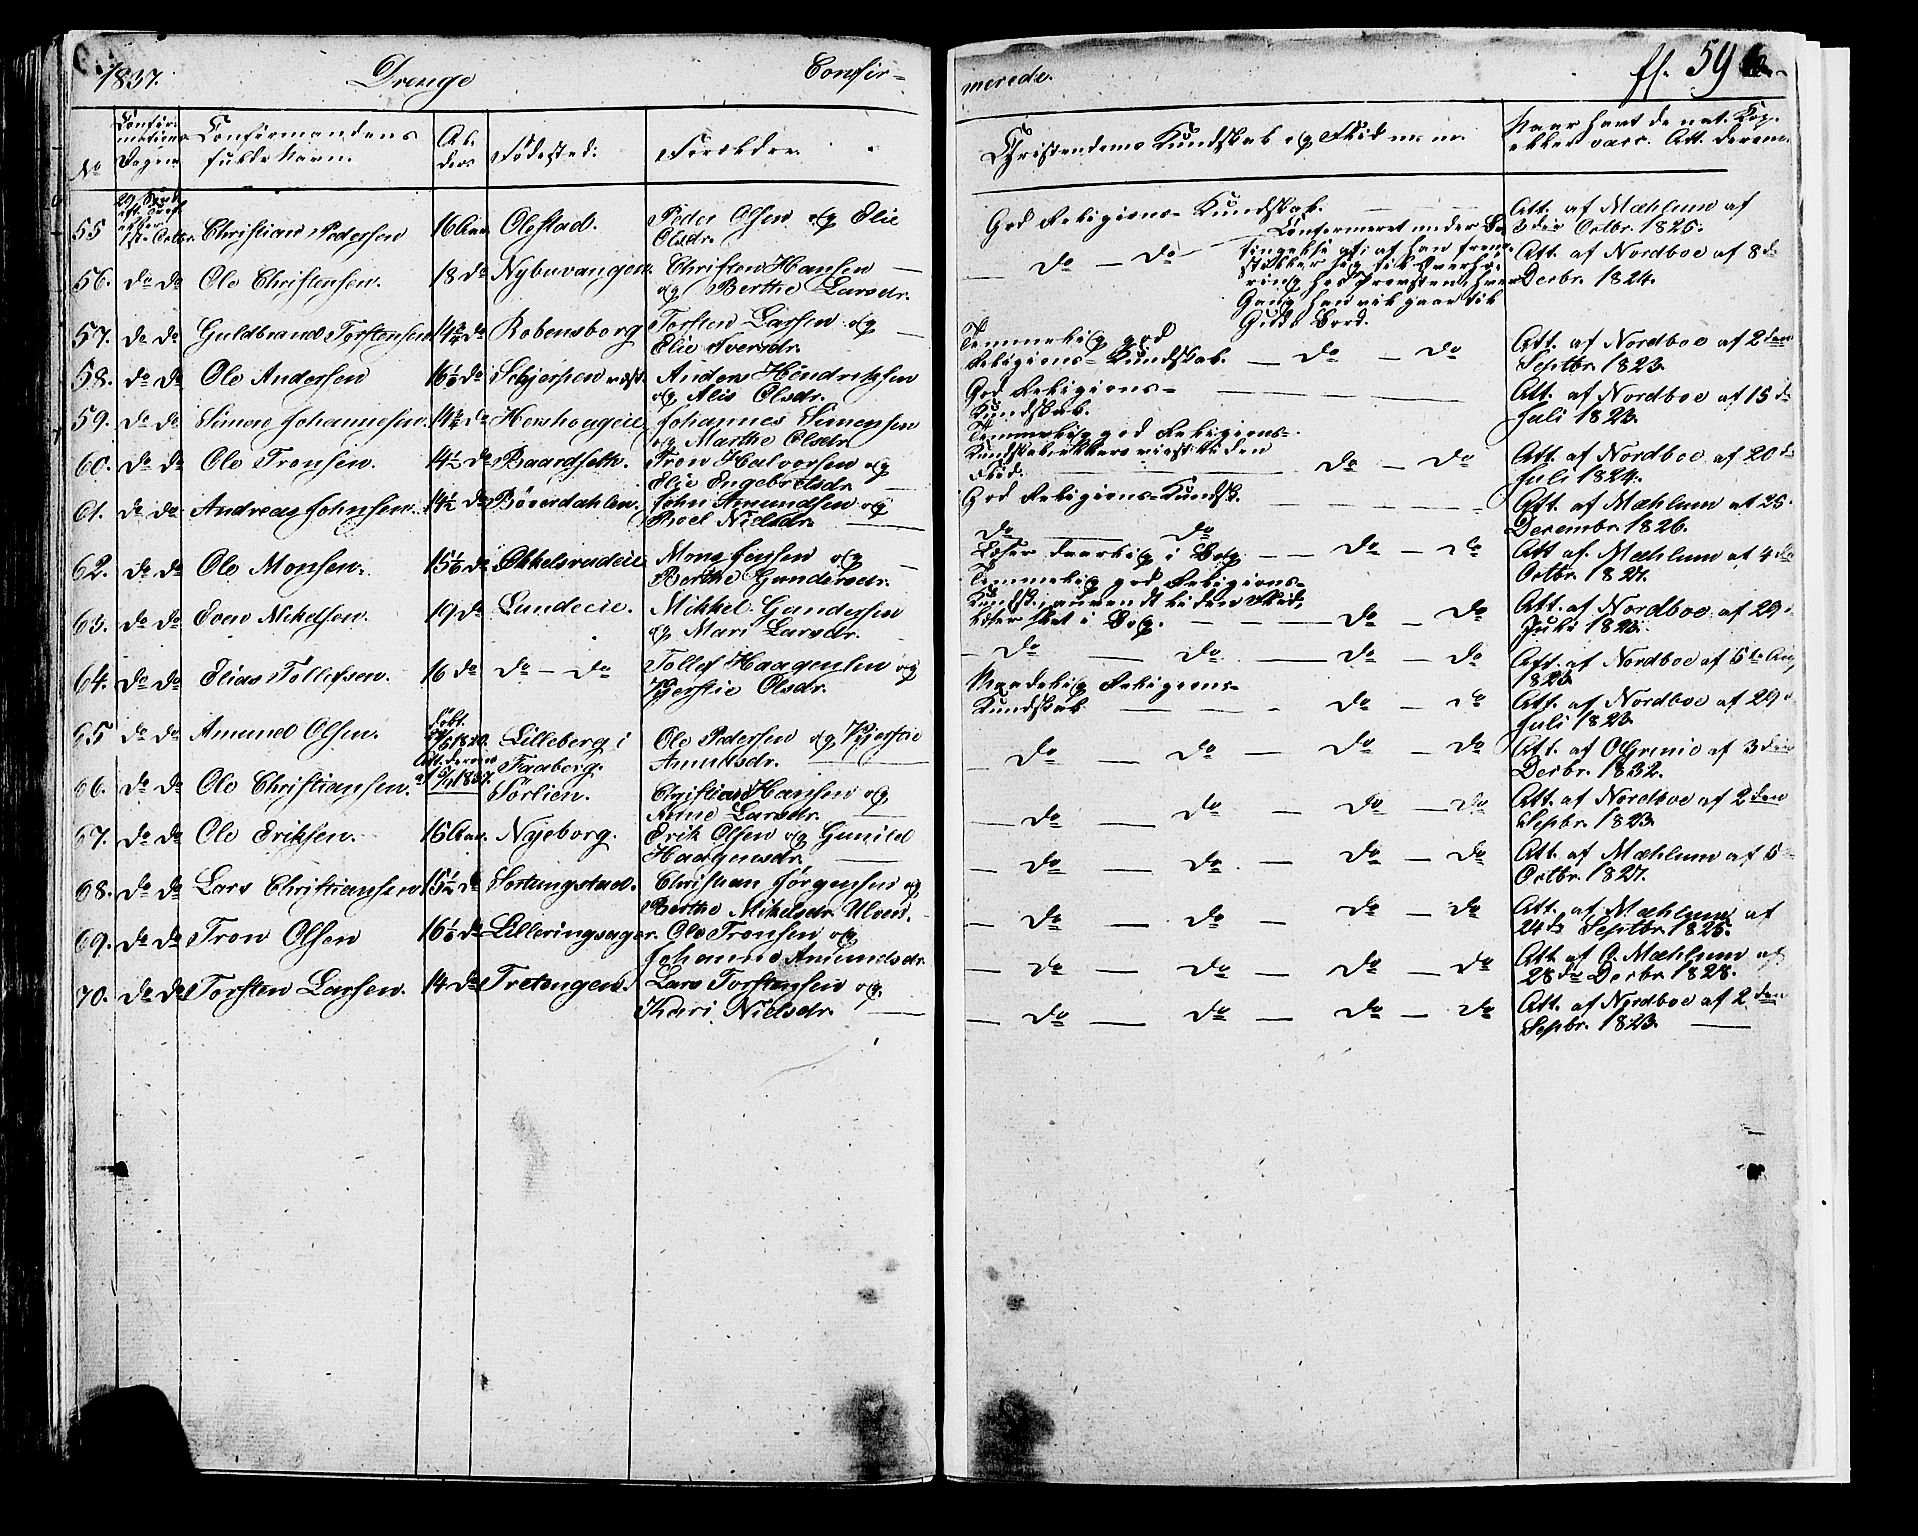 1837. Drenge Confir-
No Confirmations Dagen Confirmandens fulde Navn. Alder Fødested. Forældre
55 Christian Pedersen 16 Aar Olestad. Peder Olsen og Elie
Olsdr.
56. do do Ole Christensen. 18 do Nybuvangen. Christen Hansen
og Berthe Larsdr.
57. do do Guldbrand Torstensen 14 do Robensborg Torsten Larsen og
Elie Iversdr.
58. do do Ole Andersen 16 do Anders Hendriksen
og Alis Olsdr.
59. do do Simon Johannesen. 14 do Johannes Simensen
og Marthe Olsdr.
60. do do Ole Tronsen. 14½ do Baardseth. Tron Halvorsen og
Elie Engebretsdr.
61. do do Andreas Johnsen. 14½ do Böverdahlen. John Amundsen og
Nielsdr.
62. do do Ole Monsen. 15 do Mons Jensen og
Berthe Gundersdr.
63. do do Even Mikelsen. 19 do Lundeeie. Mikkel Gundersen
og Mari Larsdr.
64. do do Elias Tollefsen. 16 do do — do Tollef Haagensen og
Kjerstie Olsdr.
65 do do Amund Olsen. Lilleberg i Ole Pedersen og Kjerstie
Faaberg. Amundsdr.
66. do do Ole Christiansen. Sörlien. Christian Hansen og
Anne Larsdr.
67. do do Ole Eriksen. 16 Aar. Nyeborg. Erik Olsen og Gunild
Haagensdr.
68. do do Lars Christiansen 15½ do Christian Jørgensen og
Berthe Mikelsdr. Ulven.
69. do do Tron Olsen 16 do Lilleringsager. Ole Tronsen og
Johanne Amundsdr.
70. do do Torsten Larsen. 14 do Tretengen. Lars Torstensen og
Kari Nielsdr.
merede. ff. 59
Christendoms Kundskab og Flid m. m. Naar havt de nat. Kop.
eller vacc. Att. derom.
God Religions-Kundskab. Att. af Mæhlum af
3die Octbr. 1825.
— do — do Confirmeret under Be
tingelse af, at han frem
stiller sig til Overhø
ring hos Provsten, hver
Gang han vil gaae til
Guds Bord.
Att. af Nordboe af 8de
Decbr. 1824.
Temmelig god
Religions-Kundskab. — do — do Att. af Nordboe af 2den
Septbr. 1823.
God Religions-
Kundskab. Att. af Nordboe af 15de
Juli 1823.
Temmelig god Religions-
Kundskab, ellers viist liden
Flid. do — do Att. af Nordboe af 20de
Juli 1824.
God Religions-Kundsk. Att. af Mæhlum af 25
Decembr. 1826.
do do
Læser daarlig i Bog. — — do — do Att. af Mæhlum af 4de
Octbr. 1827.
Temmelig god Religions-
Kundsk., anvendt liden Flid,
læser slet i Bog. — — do — do Att. af Nordboe af 29
Juli 1823.
— do — do — do — do Att. af Nordboe af 5te Aug
1823.
Maadelig Religions-
Kundskab — — do — do Att. af Nordboe af 29
Juli 1823.
— do — do — do — do Att. af OGrenie af 3die
Decbr. 1832.
— do — do — do — do Att. af Nordboe af 2den
Sepbr. 1823.
— do — do — do — do Att. af Mæhlum af 5
Octbr. 1827.
— do — do — do — do Att. af Mæhlum af
24de Septbr. 1825.
— do — do — do — do Att. af O. Mæhlum af
28de Decbr. 1828.
— do — do — do — do Att. af Nordboe af 2den
Sepbr. 1823.